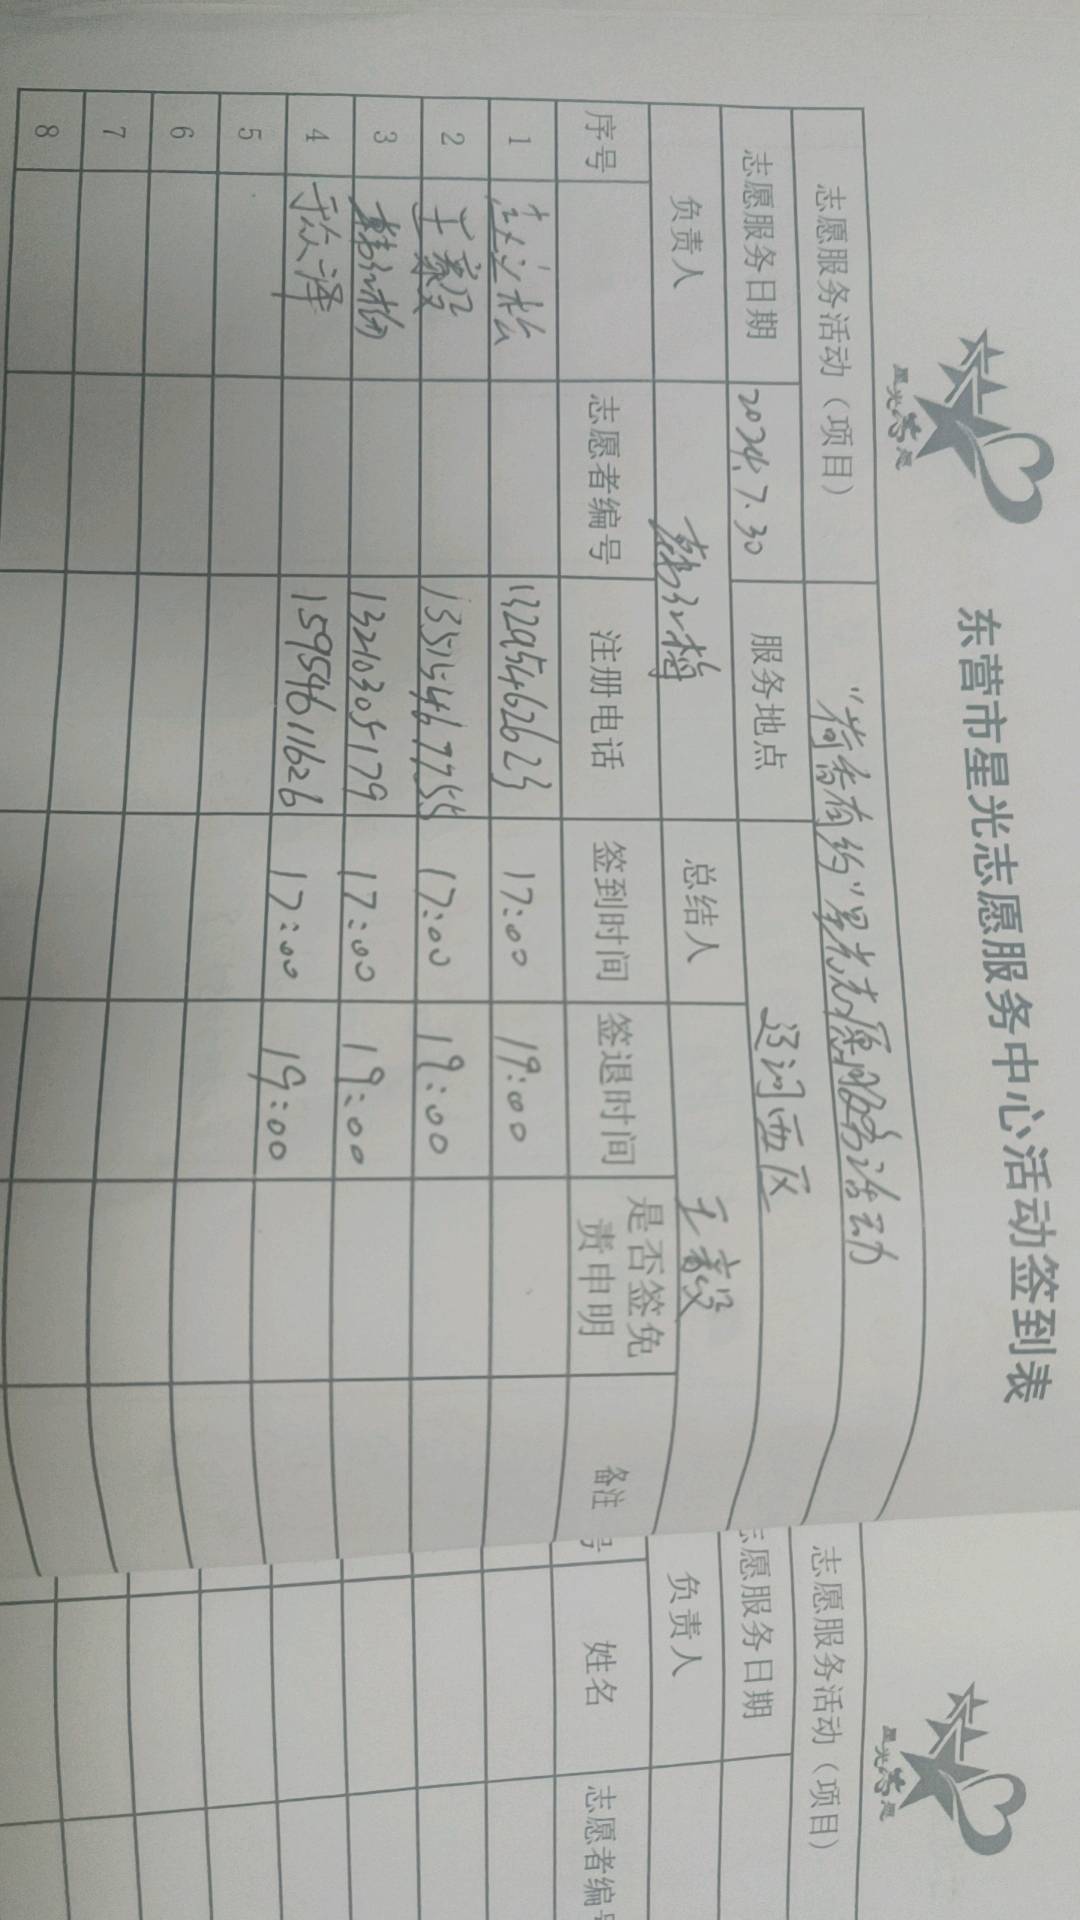 东营市星光志愿服务中心活动签到表
星光志愿
志愿服务活动（项目） "荷香有约"星光志愿服务活动
志愿服务日期 2024.7.30 服务地点 沿河西区
负责人 总结人 王毅
序号 志愿者编号 注册电话 签到时间 签退时间 是否签免责申明 备注
1 13295462623 17:00 19:00
2 王毅 13515467755 17:00 19:00
3 13210305179 17:00 19:00
4 于众泽 15954611626 17:00 19:00
5
6
7
8
星光志愿
志愿服务活动（项目）
志愿服务日期
负责人
号 姓名 志愿者编号